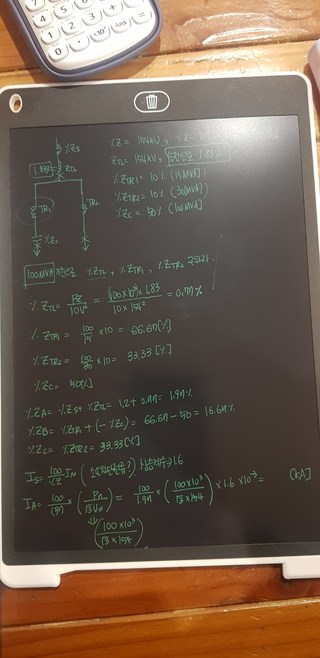 %Z = 154kV,
%Zs
Z_TL = 154kV,
1.83Ω
Z_TL
%Z_TR1 = 10% (15MVA)
TR1
TR2
%Z_TR2 = 10% (30MVA)
%Zc = 50% (100MVA)
%Zc
100MVA 기준으로 %Z_TL, %Z_TR1, %Z_TR2 구하라.
%Z_TL = PZ/10V² = (100×10³)×1.83/10×154² = 0.77%
%Z_TR1 = 100/15 ×10 = 66.67[%]
%Z_TR2 = 100/30 ×10 = 33.33 [%]
%Zc = 50[%]
%Z_A = %Zs + %Z_TL = 1.2 + 0.77 = 1.97%
%Z_B = %Z_TR1 + (-%Zc) = 66.67 - 50 = 16.67%
%Zc = %Z_TR2 = 33.33[%]
Is = 100/%Z In 1.6
I_A = 100/1.97 × (Pn/√3Vn) = 100/1.97 × (100×10³/√3×154) ×1.6 ×10⁻³ = [kA]
(100×10³/√3×154)